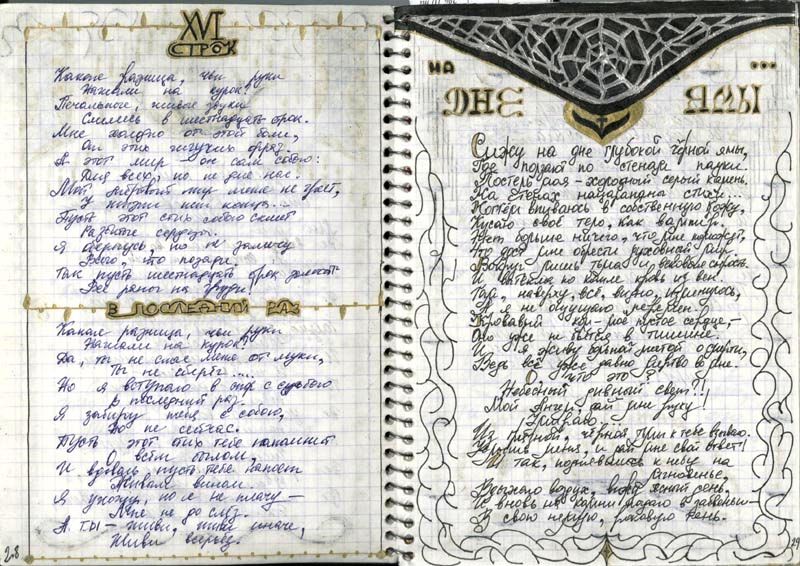 XVI
СТРОК
Какая разница, чьи руки
Нажали на курок?
Печальные, живые звуки
Слились в шестнадцать строк.
Мне холодно от этой боли,
От этих жгучих фраз.
А этот мир – он сам собою:
Для всех, но не для нас.
Мой мир меня не греет,
У жизни нет конца...
Пусть этот стих собою склеит
Разбитые сердца.
Я вернусь, но не замечу
Всего, что позади,
Так пусть шестнадцать строк залечат
Все раны на груди!
В ПОСЛЕДНИЙ РАЗ
Какая разница, чьи руки
Нажали на курок?
Да, ты не спас меня от муки,
Ты не сберёг...
Но я вступаю в с судьбою
В последний раз.
Я заберу тебя с собою,
Но не сейчас.
Пусть этот стих тебе напомнит
О всём былом,
И вдоволь пусть тебя напоит
Живым вином.
Я ухожу, но я не плачу –
Мне не до слёз.
А ты – живи, живи иначе,
Живи всерьёз.
28
НА ...
ДНЕ ЯМЫ
Сижу на дне глубокой чёрной ямы,
Где ползают по стенам пауки.
Постель моя – холодный серый камень.
На стенах нацарапаны стихи...
Когтями впиваюсь в собственную кожу,
Кусаю своё тело, как вампир.
Нет больше ничего, что мне поможет,
Что даст мне обрести духовный мир.
Вокруг лишь тьма и вековая сырость
И капелька по капле кровь из вен.
Там, наверху, всё, видно, изменилось,
А я не ощущаю перемен.
Кровавый ком – моё пустое сердце, –
Оно уже не бьётся в тишине.
И я живу одной мечтой о смерти,
Ведь всё уже давно мертво во мне.
О, что это?
Небесный дивный свет!!
Мой Ангел, дай мне руку!
Умираю...
Из мутной, чёрной тьмы к тебе взываю.
Услышь меня, и дай мне свой ответ!
И так, поднявшись к небу на
мгновенье,
Вдыхаю воздух, вижу ясный день.
И вновь на камни падаю в забвеньи –
В свою немую, роковую тень.
29